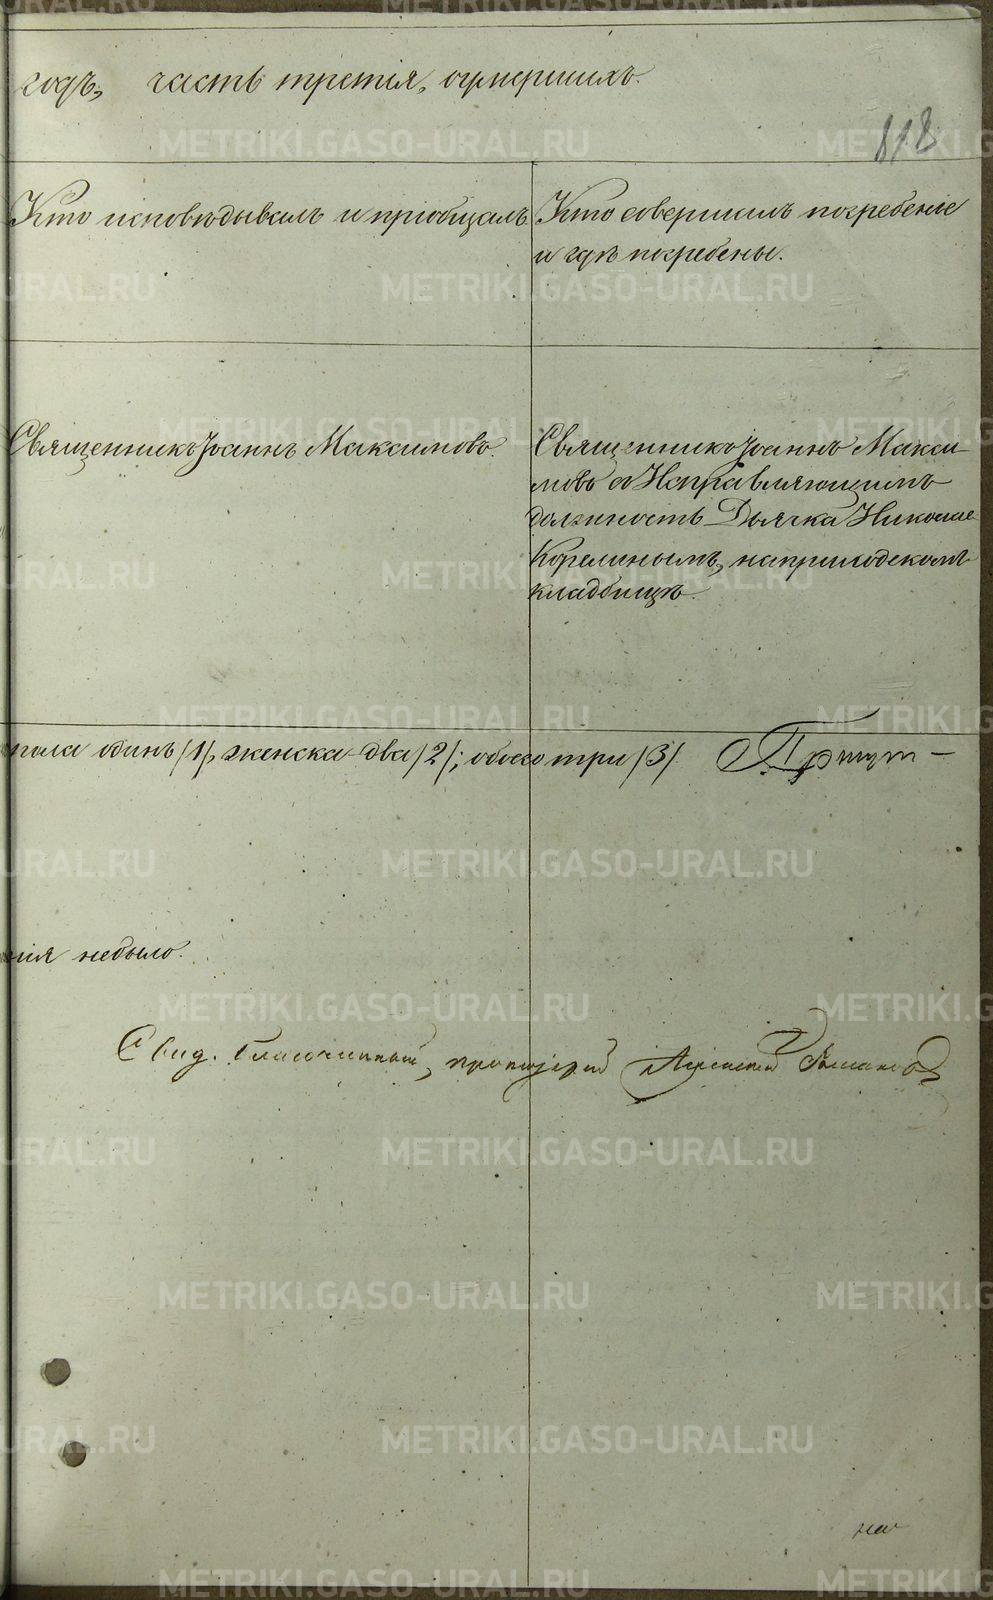 годъ, часть третія, умершихъ.
818
Кто исповѣдывалъ и пріобщалъ
Кто совершилъ погребеніе
и гдѣ погребены.
Священникъ Іоаннъ Максимовъ.
Священникъ Іоаннъ Макси-
мовъ съ Исправляющимъ
должность Дьячка Николае
Корелинымъ, на приходскомъ
кладбищѣ.
пола одинъ /1/, женска два /2/; обоего три /3/
нія небыло.
Свид. благочинный, протоіерей
METRIKI.GASO-URAL.RU